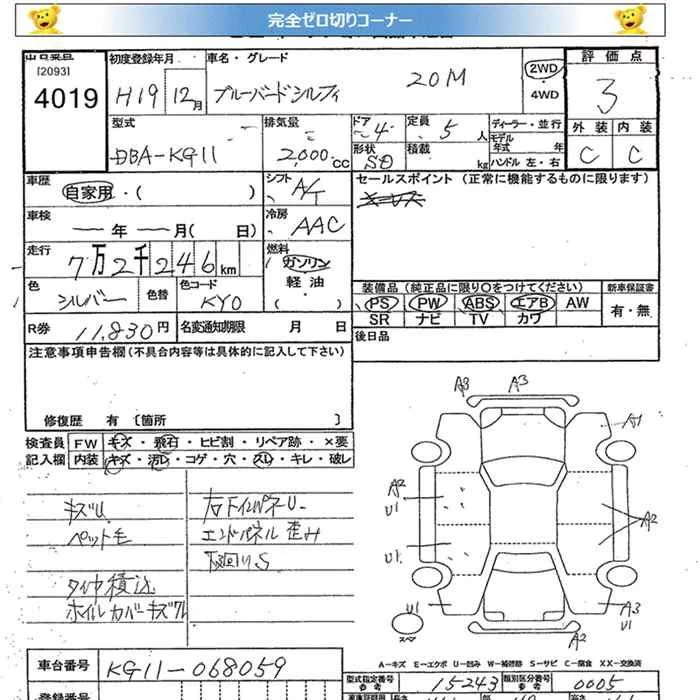 完全ゼロ切りコーナー
出品番号
[2093]
4019
初度登録年月
H19 12月
車名・グレード
ブルーバードシルフィ 20M
2WD
4WD
評価点
3
外装 内装
C C
型式
DBA-KG11
排気量
2,000cc
ドア
4
形状
SD
定員
5人
積載
kg
ディーラー・並行
モデル
年式 年
ハンドル 左・右
車歴
自家用・( )
シフト
A/T
車検
ー年ー月( 日)
冷房
AAC
走行
7万2千246km
燃料
ガソリン
軽油
( )
色
シルバー
色替
色コード
KY0
R券
11,830円
名変通知期限 月 日
セールスポイント (正常に機能するものに限ります)
装備品 (純正品に限り○をつけてください)
PS PW ABS エアB AW
SR ナビ TV カワ
新車保証書
有・無
後日品
注意事項申告欄(不具合内容等は具体的に記入して下さい)
修復歴 有 [箇所 ]
検査員 FW キズ・飛石・ヒビ割・リペア跡・×要
記入欄 内装 キズ・汚レ・コゲ・穴・スレ・キレ・破レ
キズU
ペット毛
タイヤ積込
ホイルカバーキズワレ
右下インパネU.
エンドパネル歪み
下廻りS
A3
A3
A1
A2
U1
A2
U1
U1
A3
U1
スペア
A2
A-キズ E-エクボ U-凹み W-補修跡 S-サビ C-腐食 XX-交換済
車台番号
KG11-068059
型式指定番号
参考
15243
類別区分番号
参考
0005
登録番号